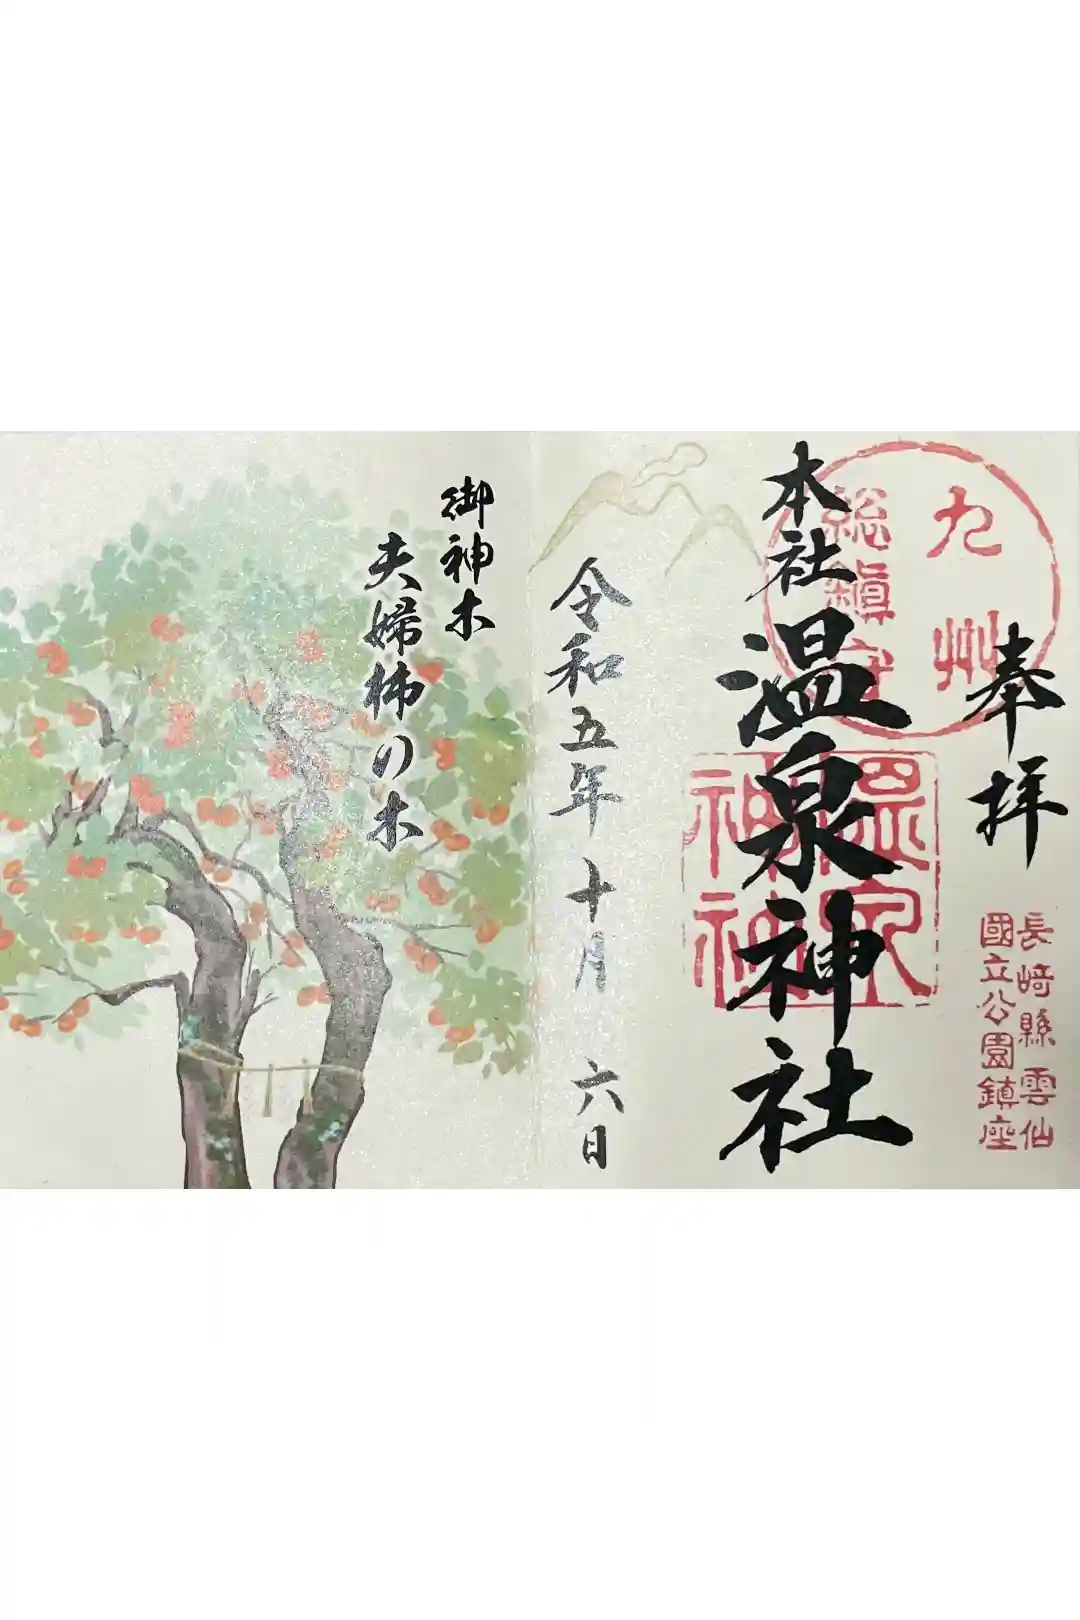 奉拝
長崎縣雲仙
國立公園鎮座
九州
総鎮守
本社温泉神社
温泉
神社
令和五年十月六日
御神木
夫婦柿の木